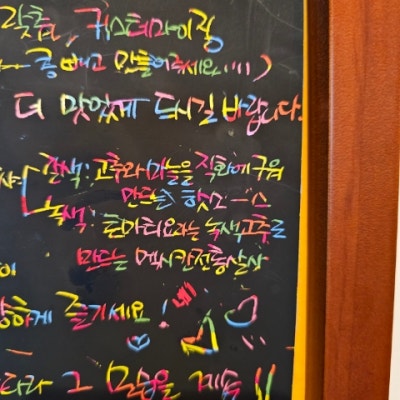 맞춤, 커스터마이징
콩 빼고 만들어주세요 !!! )
더 맛있게 드시길 바랍니다.
갈색: 고추와 마늘을 직화에 구워
만드는 핫소스
녹색: 토마티요라는 녹색고추로
만드는 멕시칸전통살사
이
하게 즐기세요! 네!
타라 그 모습을 계속 !!